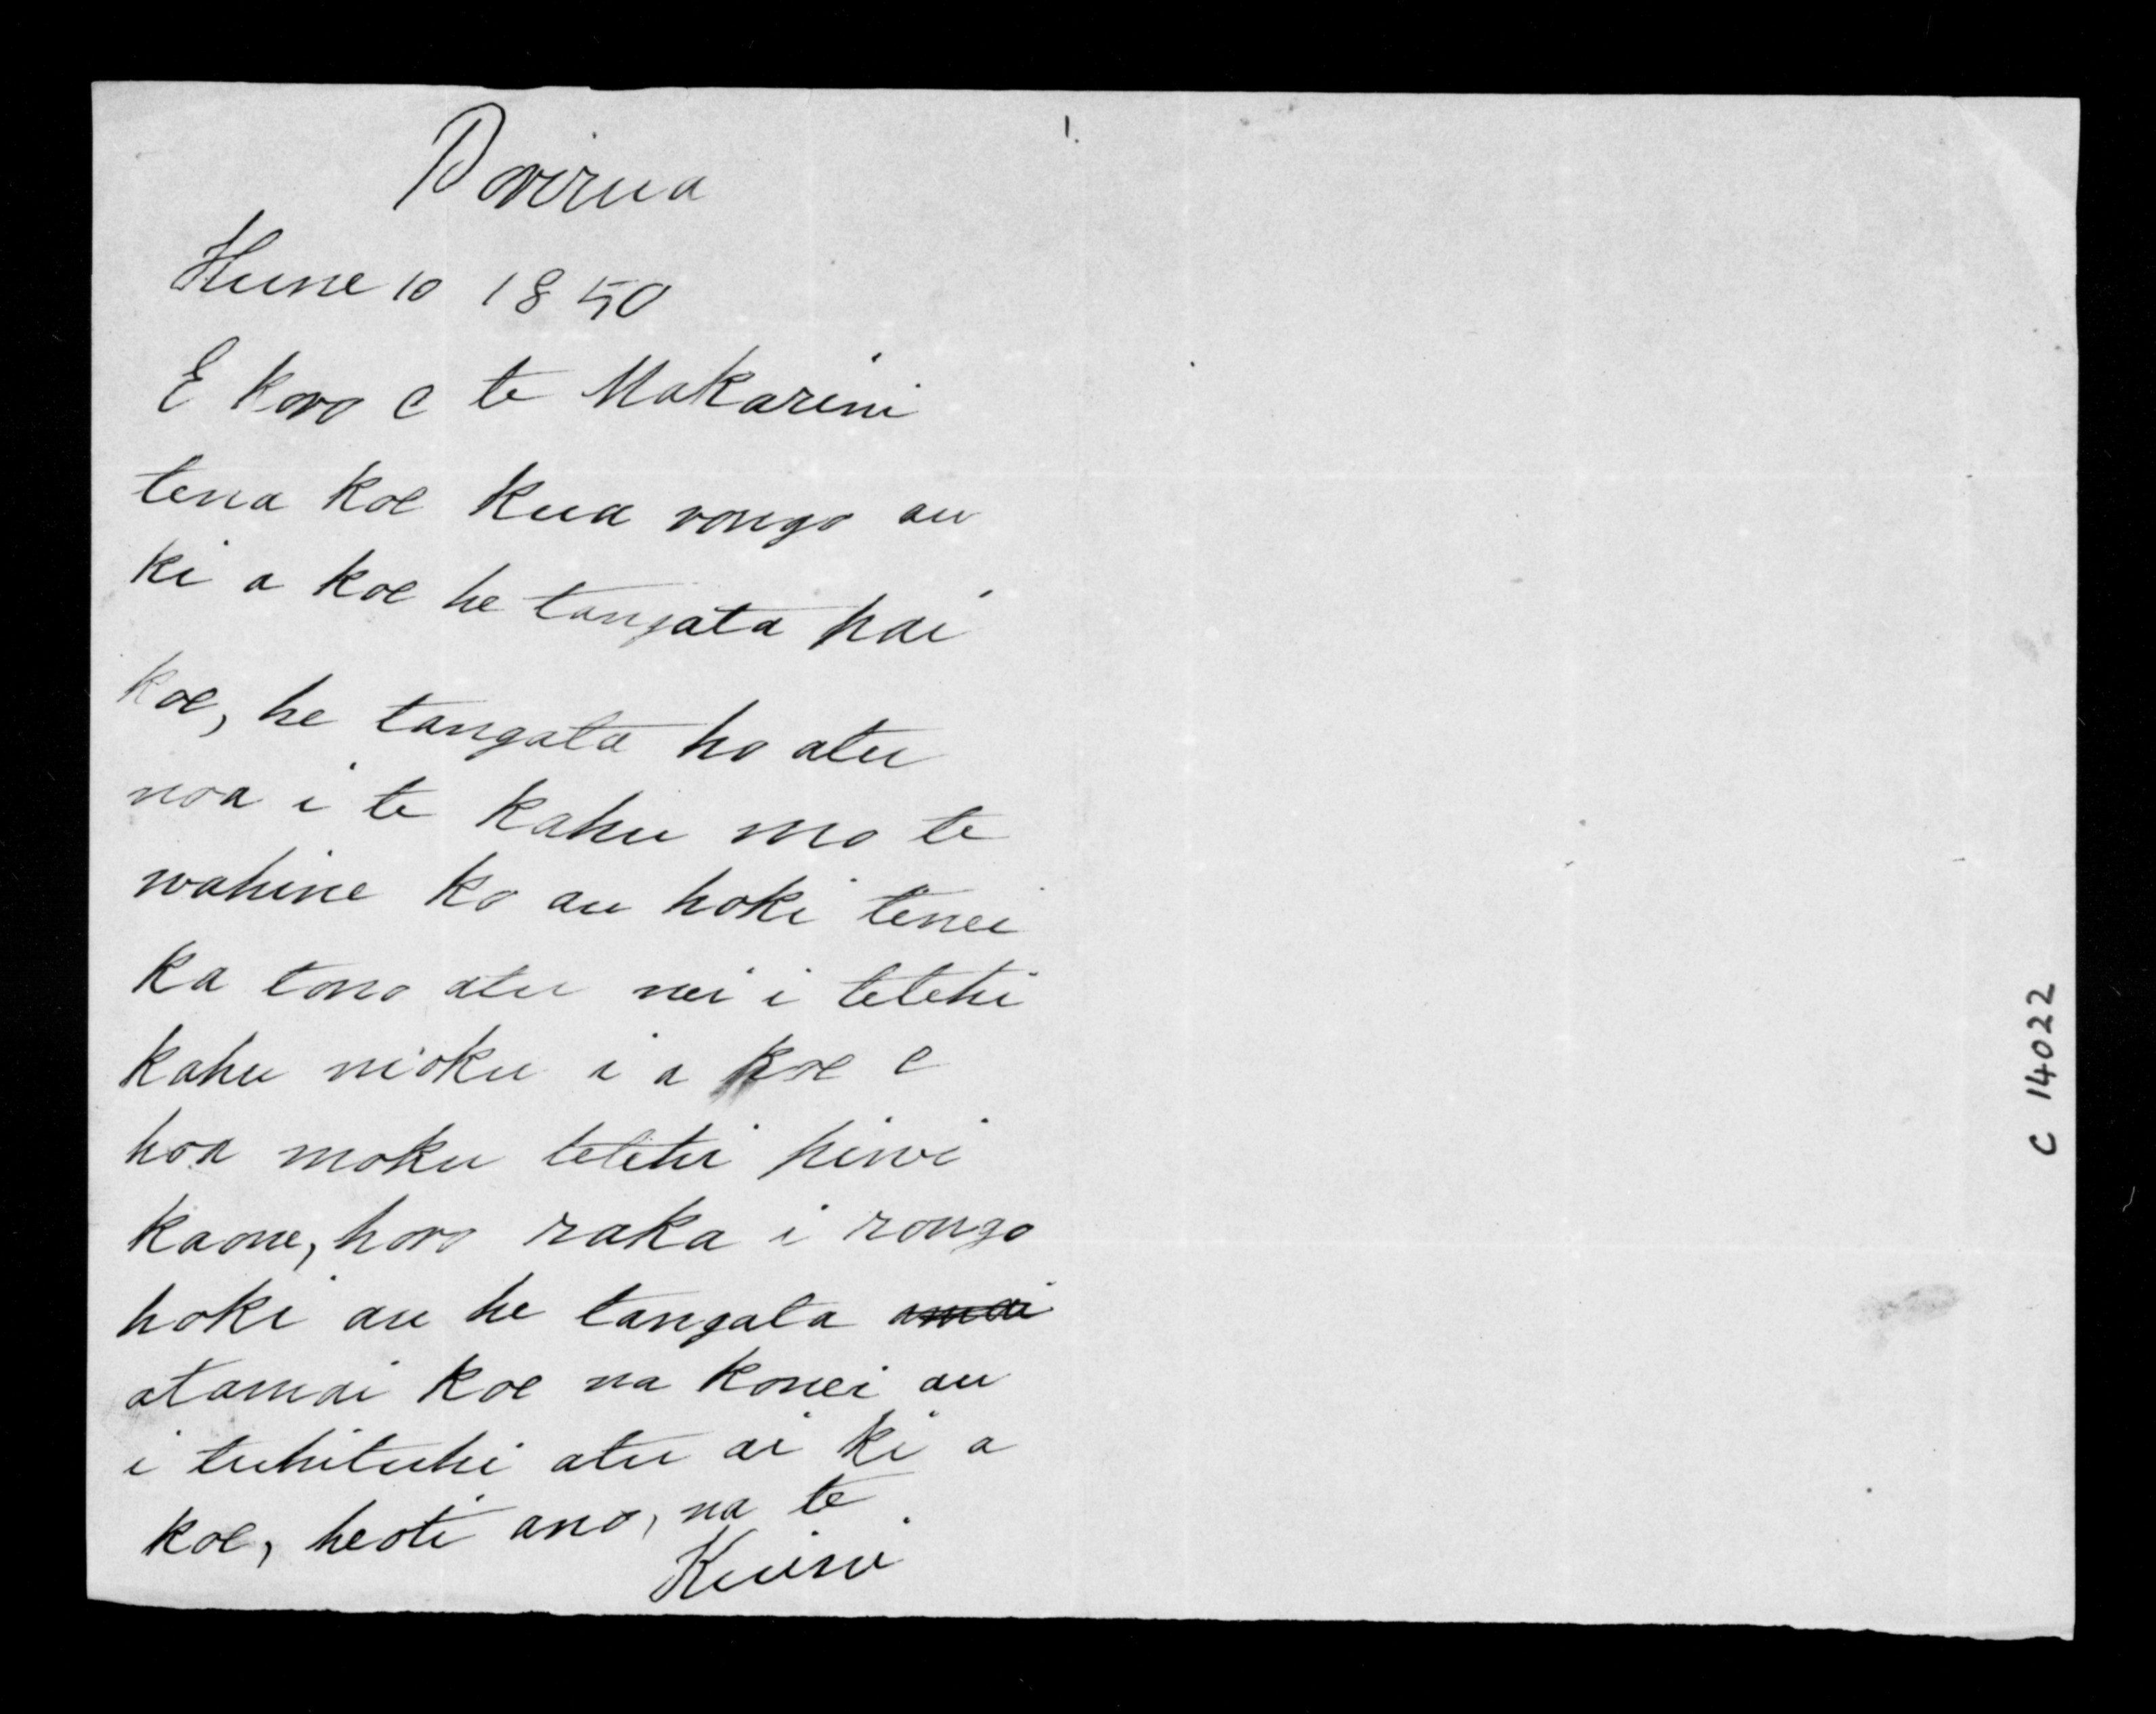 1.
Porirua
Hune 10 1850
E koro e te Makarini
tena koe kua rongo au
ki a koe he tangata pai
koe, he tangata ho atu
noa i te kahu mo te
wahine ko au hoki tenei
ka tono atu nei i tetehi
kahu moku i a koe e
hoa moku tetehi piwi
kaone, horo raka i rongo
hoki au he tangata amai
atamai koe na konei au
i tuhituhi atu ai ki a
koe, heoti ano, na te
Kuini
C 14022